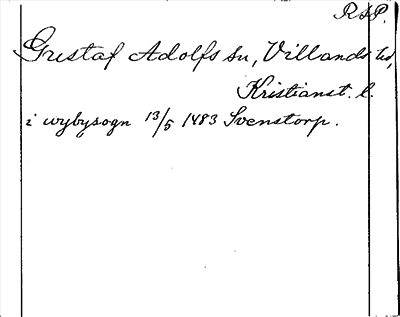 RSP.
Gustaf Adolfs sn, Villands hd,
Kristianst. l.
i wybysogn 13/5 1483 Svenstorp.